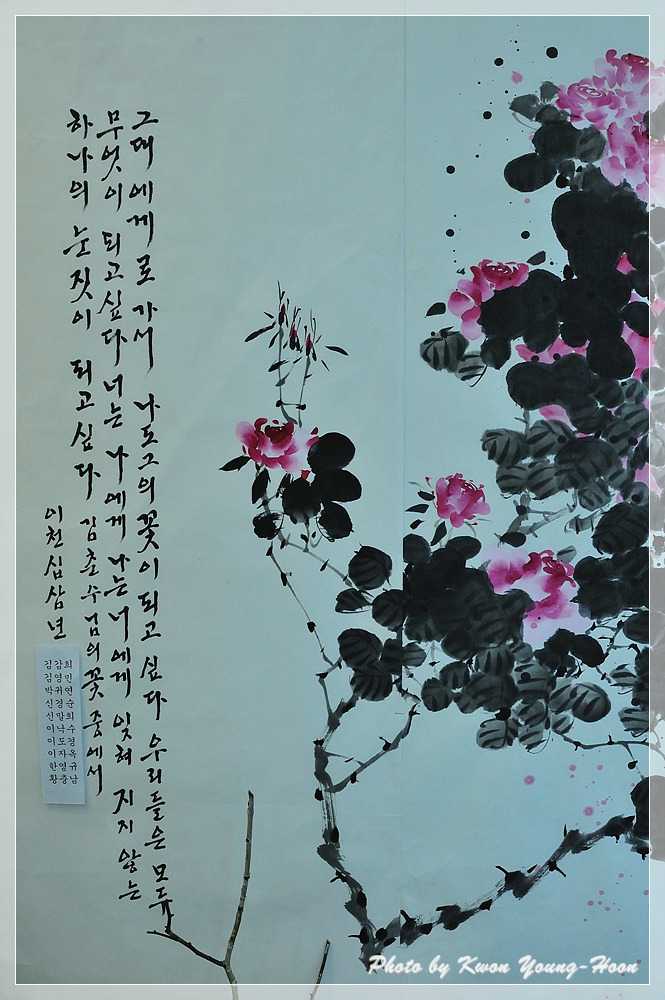 그대에게로 가서 나도 그의 꽃이 되고 싶다 우리들은 모두
무엇이 되고 싶다 너는 나에게 나는 너에게 잊혀 지지 않는
하나의 눈짓이 되고 싶다 김춘수님의 꽃 중에서
이천십삼년
김감희
김영민
박귀연
신경순
신말희
이낙수
이도경
이자옥
한영규
황충남
Photo by Kwon Young-Hoon